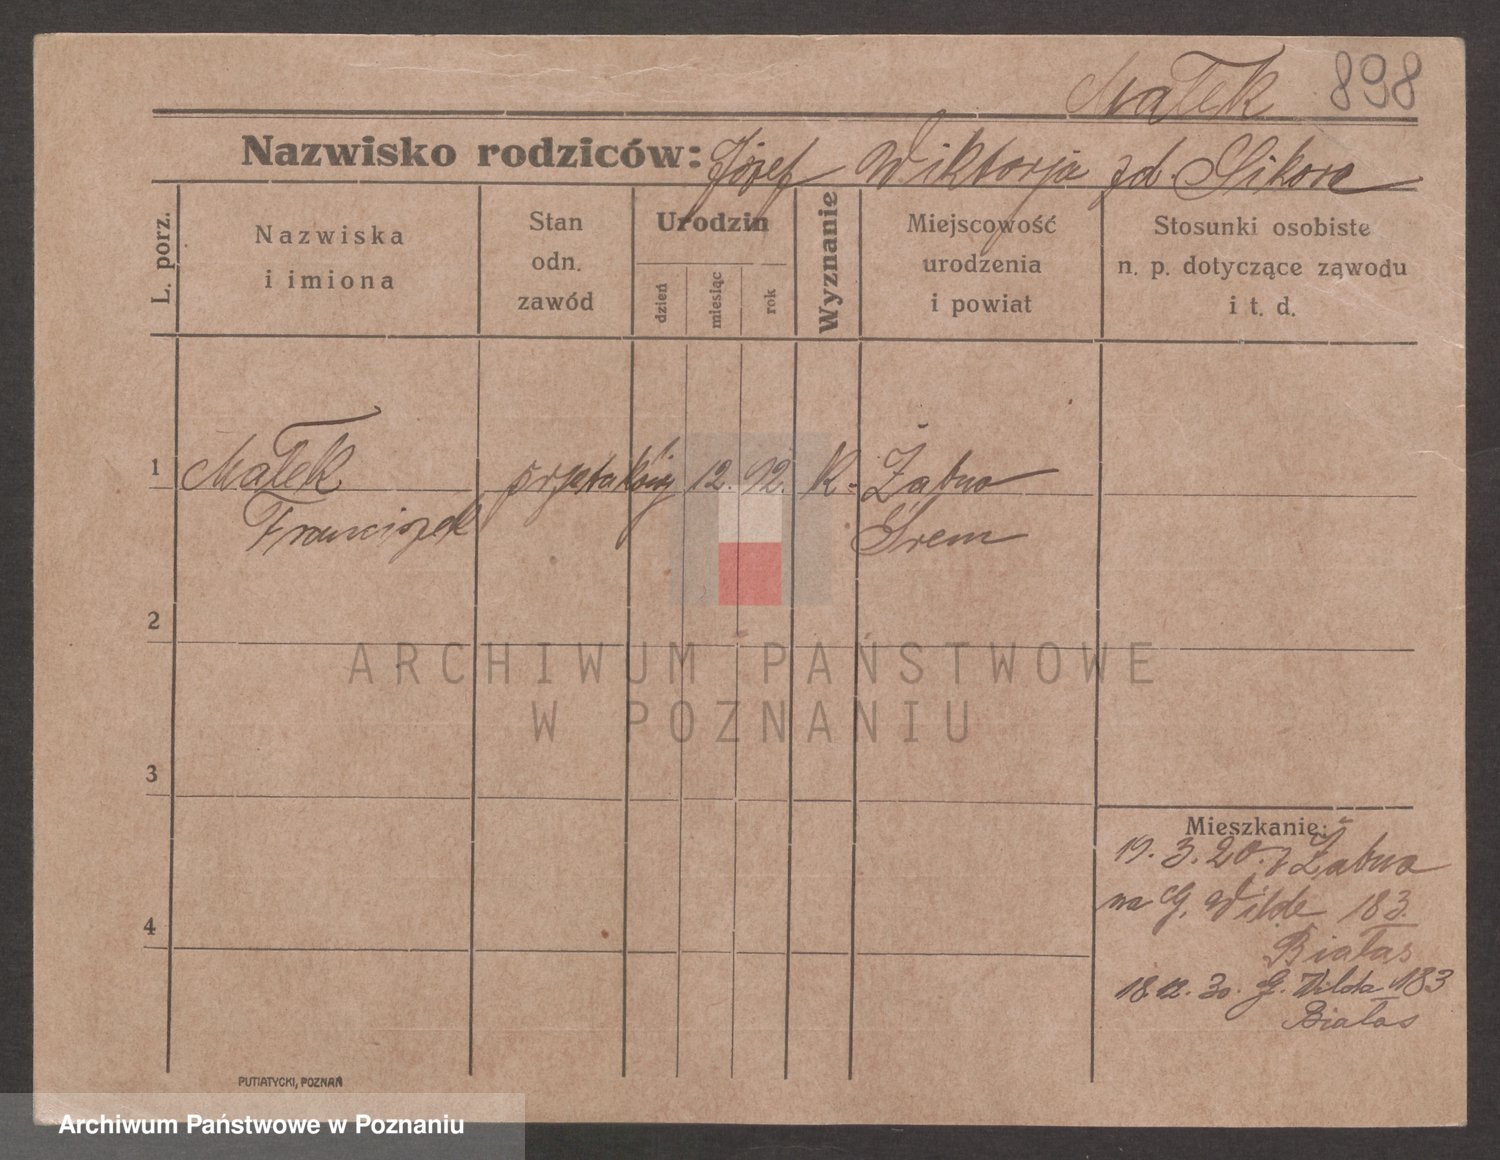 Małek 898
Nazwisko rodziców: Józef Wiktorja zd. Sikora
L. porz.
Nazwiska
i imiona
Stan
odn.
zawód
Urodzin
dzień
miesiąc
rok
Wyznanie
Miejscowość
urodzenia
i powiat
Stosunki osobiste
n. p. dotyczące zawodu
i t. d.
1 Małek 12. 92. K. Żabno
Franciszek Śrem
2
ARCHIWUM PAŃSTWOWE
W POZNANIU
3
4
Mieszkanie:
19. 3. 20. z Żabna
na G. Wilde 183.
Białas
18.12.30. G. Wilda 183
Białas
PUTIATYCKI, POZNAŃ
Archiwum Państwowe w Poznaniu